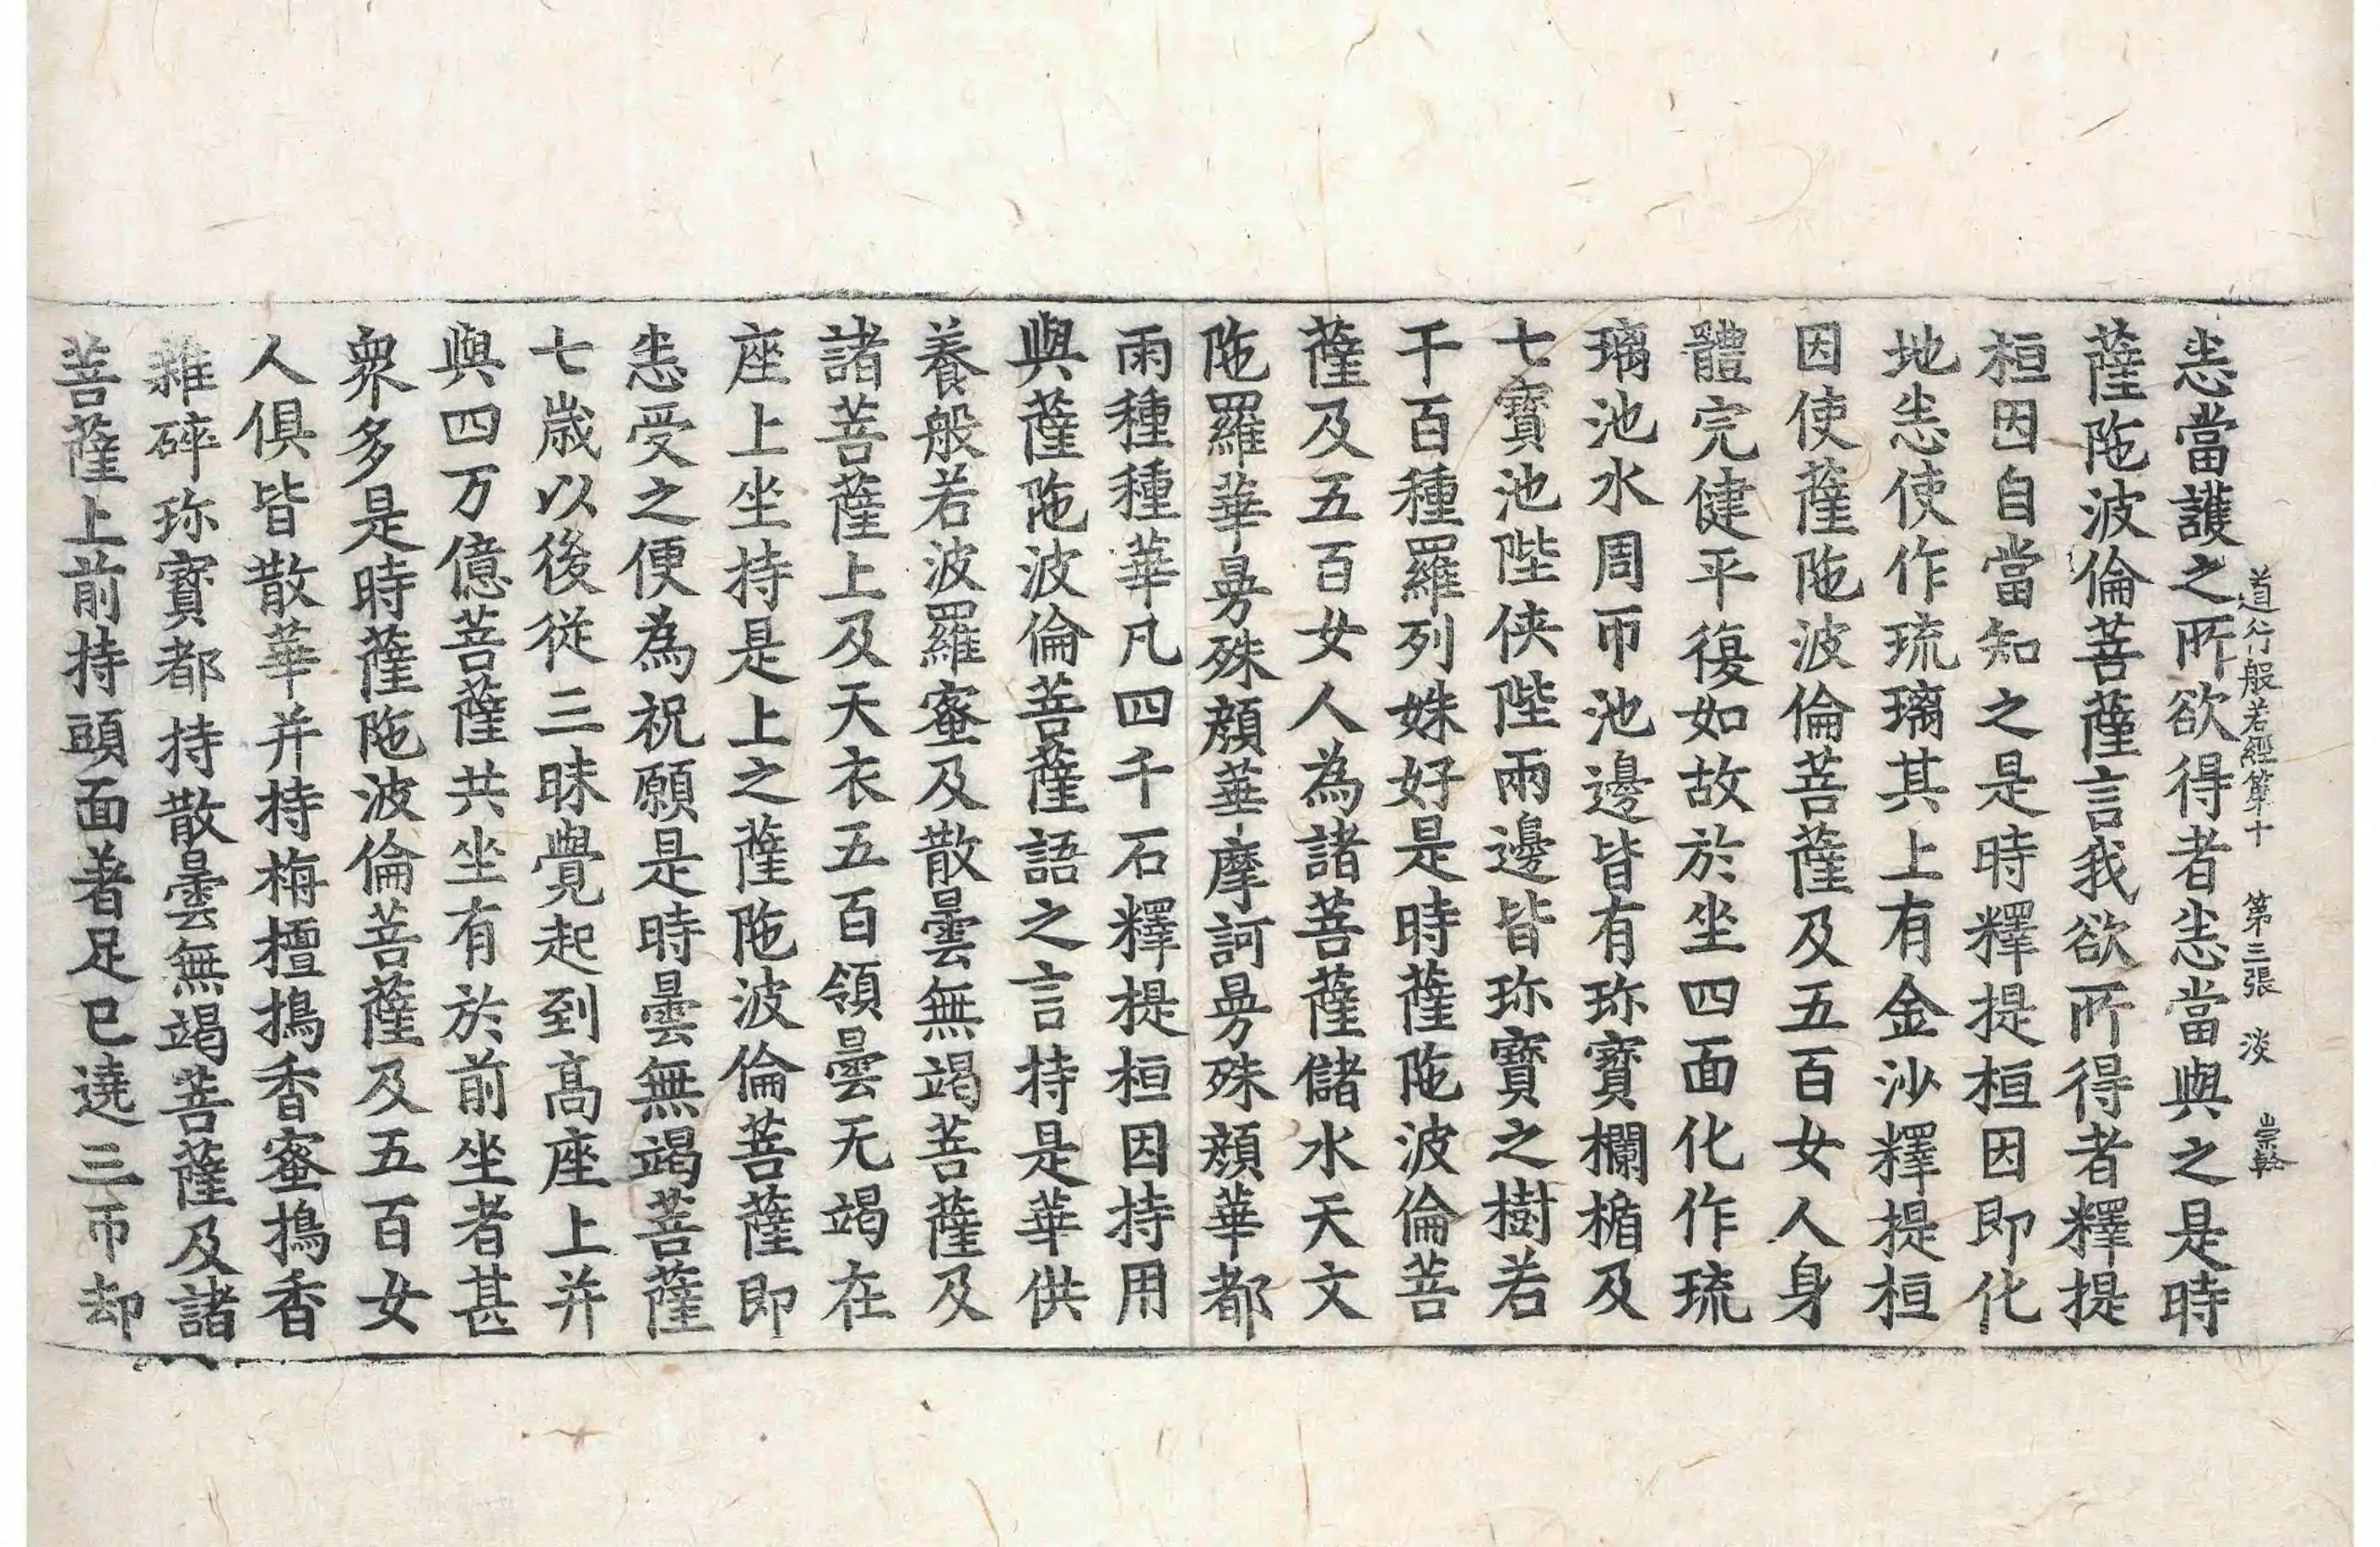 道行般若經第十　第三張　淡　崇幹
恙當護之所欲得者恙當與之是時
薩陁波倫菩薩言我欲所得者釋提
桓因自當知之是時釋提桓因即化
地恙使作琉璃其上有金沙釋提桓
因使薩陁波倫菩薩及五百女人身
體完健平復如故於坐四面化作琉
璃池水周帀池邊皆有珎寶欄楯及
七寶池陛俠陛兩邊皆珎寶之樹若
干百種羅列姝好是時薩陁波倫菩
薩及五百女人為諸菩薩儲水天文
陁羅華曼殊顏華摩訶曼殊顏華都
雨種種華凡四千石釋提桓因持用
與薩陁波倫菩薩語之言持是華供
養般若波羅蜜及散曇無竭菩薩及
諸菩薩上及天衣五百領曇无竭在
座上坐持是上之薩陁波倫菩薩即
恙受之便為祝願是時曇無竭菩薩
七歲以後從三昧覺起到髙座上并
與四万億菩薩共坐有於前坐者甚
眾多是時薩陁波倫菩薩及五百女
人俱皆散華并持栴檀擣香蜜擣香
雜碎珎寶都持散曇無竭菩薩及諸
菩薩上前持頭面著足已遶三帀却